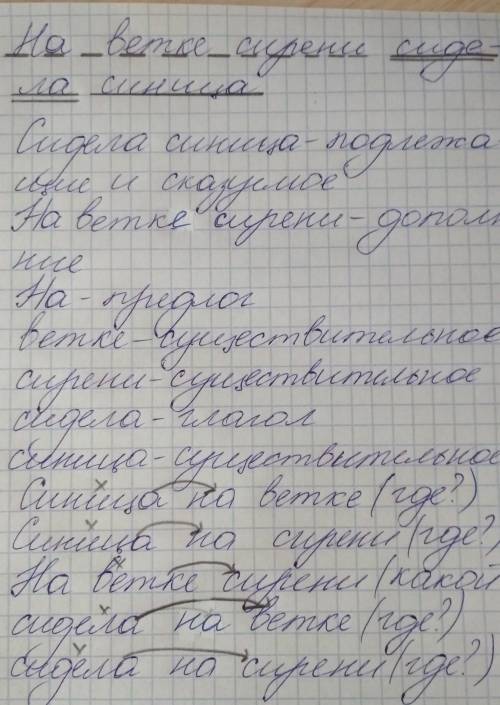 На ветке сирени сиде-
ла синица
Сидела синица - подлежа
щие и сказуемое
На ветке сирени - дополн
ние
На - предлог
ветке - существительное
сирени - существительное
сидела - глагол
синица - существительное
Синица на ветке (где?)
Синица на сирени (где?)
На ветке сирени (какой
сидела на ветке (где?)
сидела на сирени (где?)